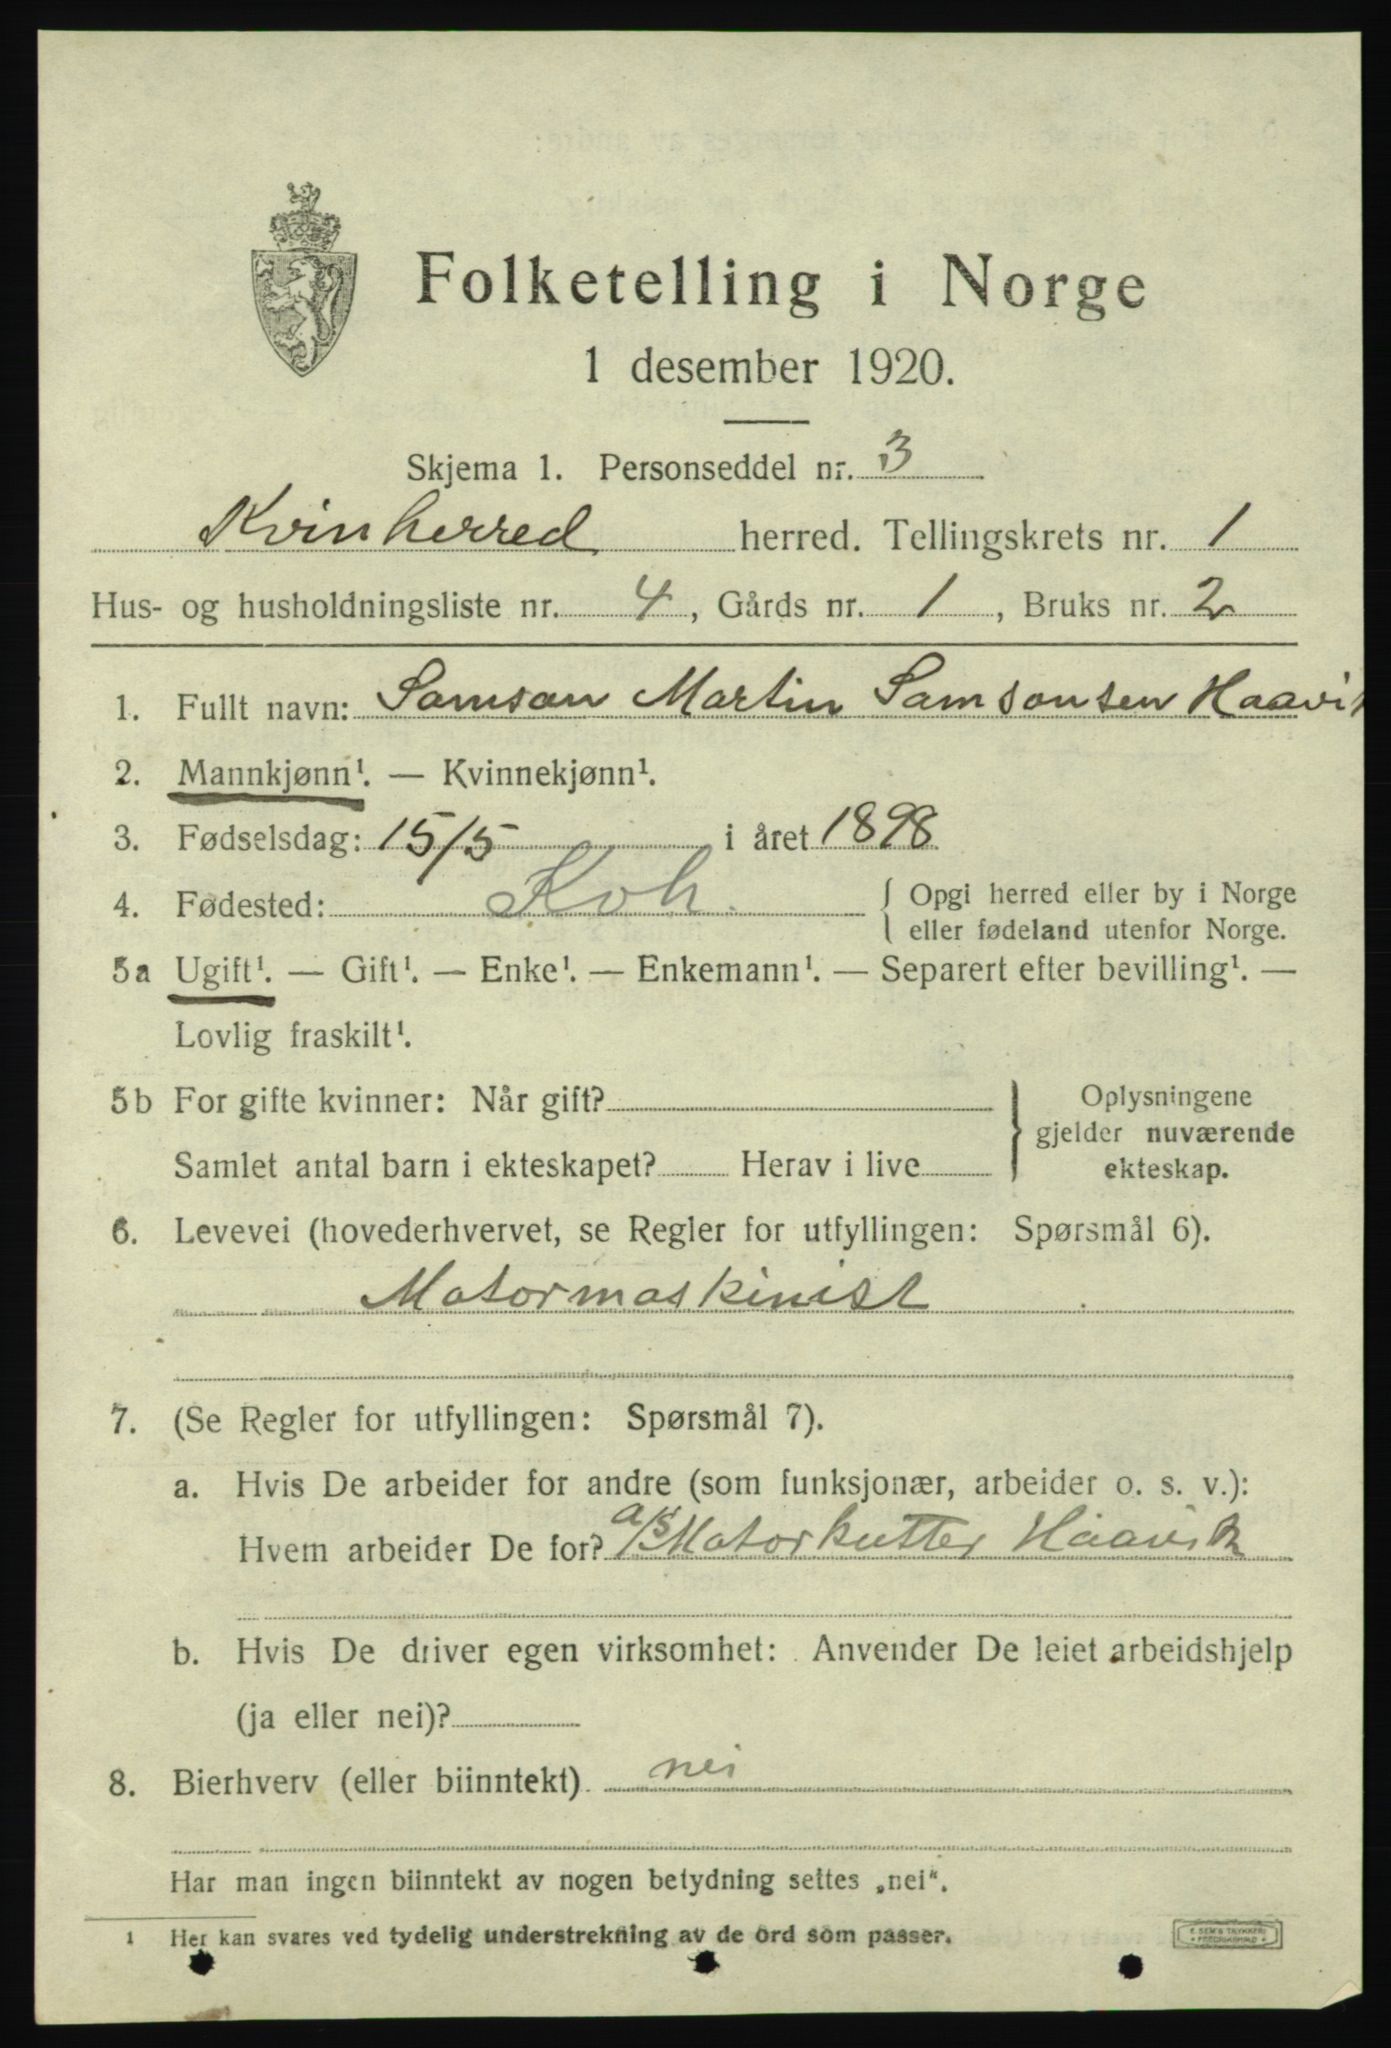 Folketelling i Norge
1 desember 1920.
Skjema 1. Personseddel nr. 3
Kvinherred herred. Tellingskrets nr. 1
Hus- og husholdningsliste nr. 4, Gårds nr. 1, Bruks nr. 2
1. Fullt navn: Samson Martin Samsonsen Haavik
2. Mannkjønn¹. — Kvinnekjønn¹.
3. Fødselsdag: 15/5 i året 1898
4. Fødested: Kvh. { Opgi herred eller by i Norge
eller fødeland utenfor Norge.
5a Ugift¹. — Gift¹. — Enke¹. — Enkemann¹. — Separert efter bevilling¹. —
Lovlig fraskilt¹.
5b For gifte kvinner: Når gift? } Oplysningene
gjelder nuværende
Samlet antal barn i ekteskapet? Herav i live
ekteskap.
6. Levevei (hovederhvervet, se Regler for utfyllingen: Spørsmål 6).
Motormaskinist
7. (Se Regler for utfyllingen: Spørsmål 7).
a. Hvis De arbeider for andre (som funksjonær, arbeider o. s. v.):
Hvem arbeider De for? a/s Motorkutter Haavik
b. Hvis De driver egen virksomhet: Anvender De leiet arbeidshjelp
(ja eller nei)?
8. Bierhverv (eller biinntekt) nei
Har man ingen biinntekt av nogen betydning settes „nei“.
1 Her kan svares ved tydelig understrekning av de ord som passer.
SEM'S TRYKKERI
FREDRIKSHALD